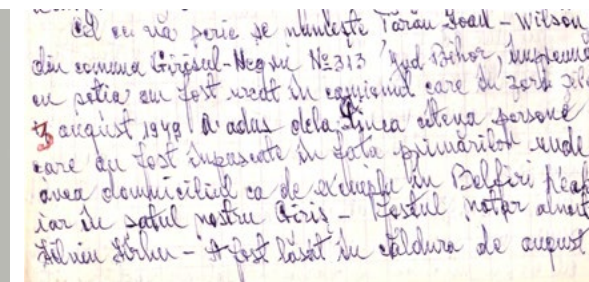 Cel ce vă scrie se numește Tărău Ioan - Wilson
din comuna Girișul-Negru № 313 jud Bihor, împreună
cu soția am fost urcat în camionul care în zorii zilei
3 august 1949 a adus dela Tinca câteva persoane
care au fost împușcate în fața primăriilor unde
avea domiciliul ca de exemplu în Belfiri
iar în satul nostru Giriș - Fostul notar
- A fost lăsat în căldura de august